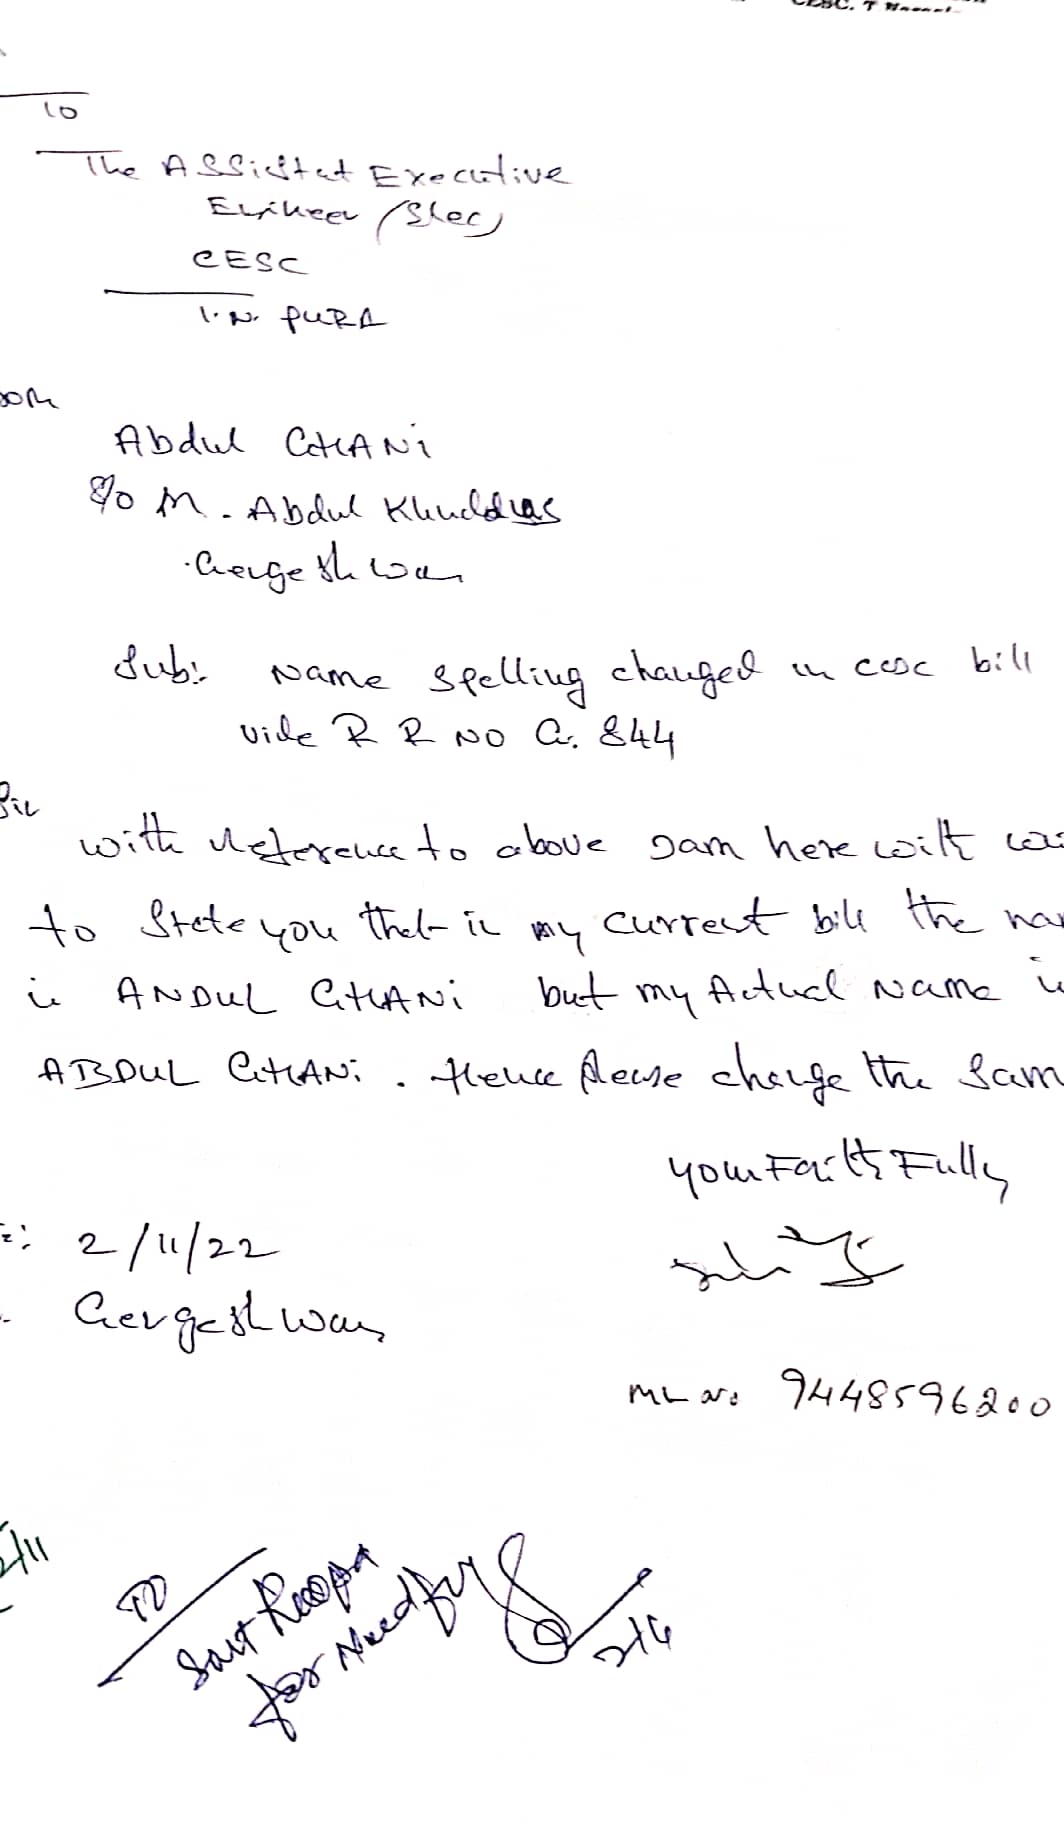 CESC. T
To
The ASSistat Executive
Engineer (Elec)
CESC
T. N. PURA
Abdul GHANi
S/o M. Abdul Khuddus
Gargeshwari
Sub: Name Spelling changed in cesc bill
vide R R NO G. 844
Sir
with reference to above Iam here with
to State you that in my current bill the
is ANDUL GHANi but my Actual Name is
ABDUL GHANi. Hence please change the Sam
your Faith Fully
2/11/22
Gargeshwari
ML No 9448596200
2/11
TO
Smt Roopa
for Needful
2/11